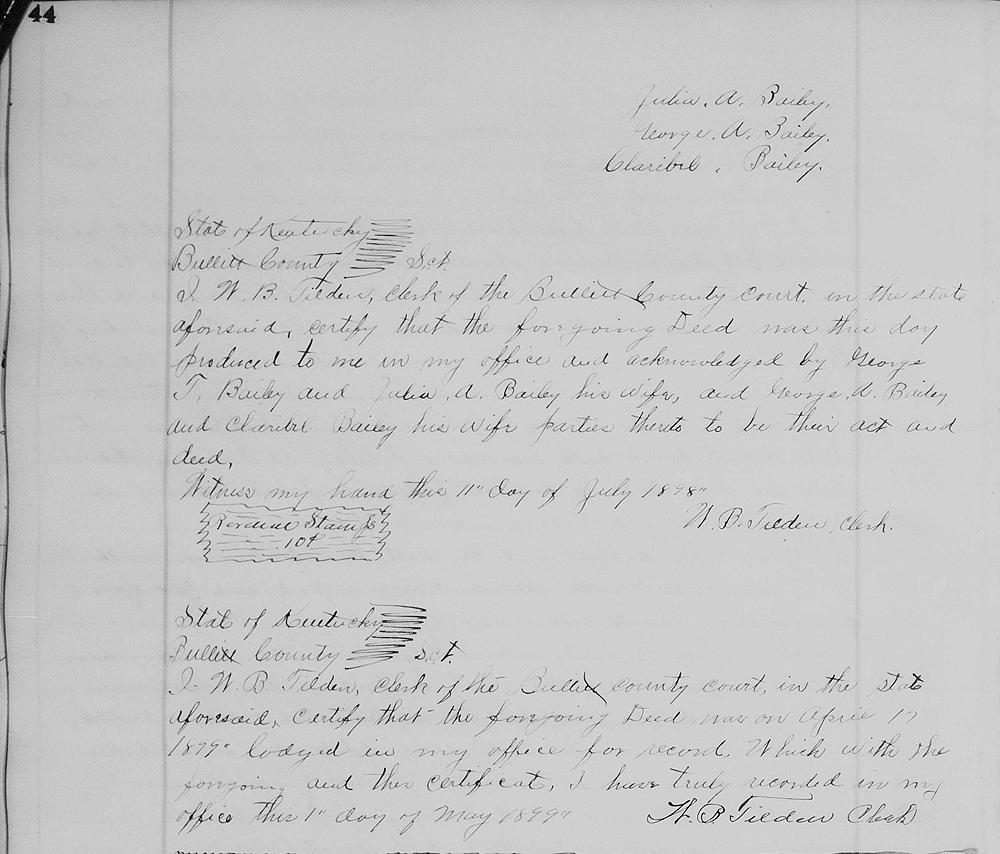 44
Julia. A. Bailey.
George. A. Bailey.
Claribel . Bailey.
State of Kentucky
Bullitt County Sct.
I. W. B. Tilden, clerk of the Bullitt County court. in the state
aforesaid, certify that the foregoing Deed was this day
produced to me in my office and acknowledged by George
T. Bailey and Julia. A. Bailey his wife, and George. A. Bailey
and Claribel Bailey his wife parties thereto to be their act and
deed,
Witness my hand this 11" day of July 1898"
Revenue Stamps
10¢
W. B. Tilden, clerk.
State of Kentucky
Bullitt County Sct.
I. W. B. Tilden, clerk of the Bullitt county court, in the state
aforesaid, certify that the foregoing Deed was on April
1899" lodged in my office for record. Which with the
foregoing and this certificate, I have truly recorded in my
office this 1" day of May 1899" W. B Tilden Clerk